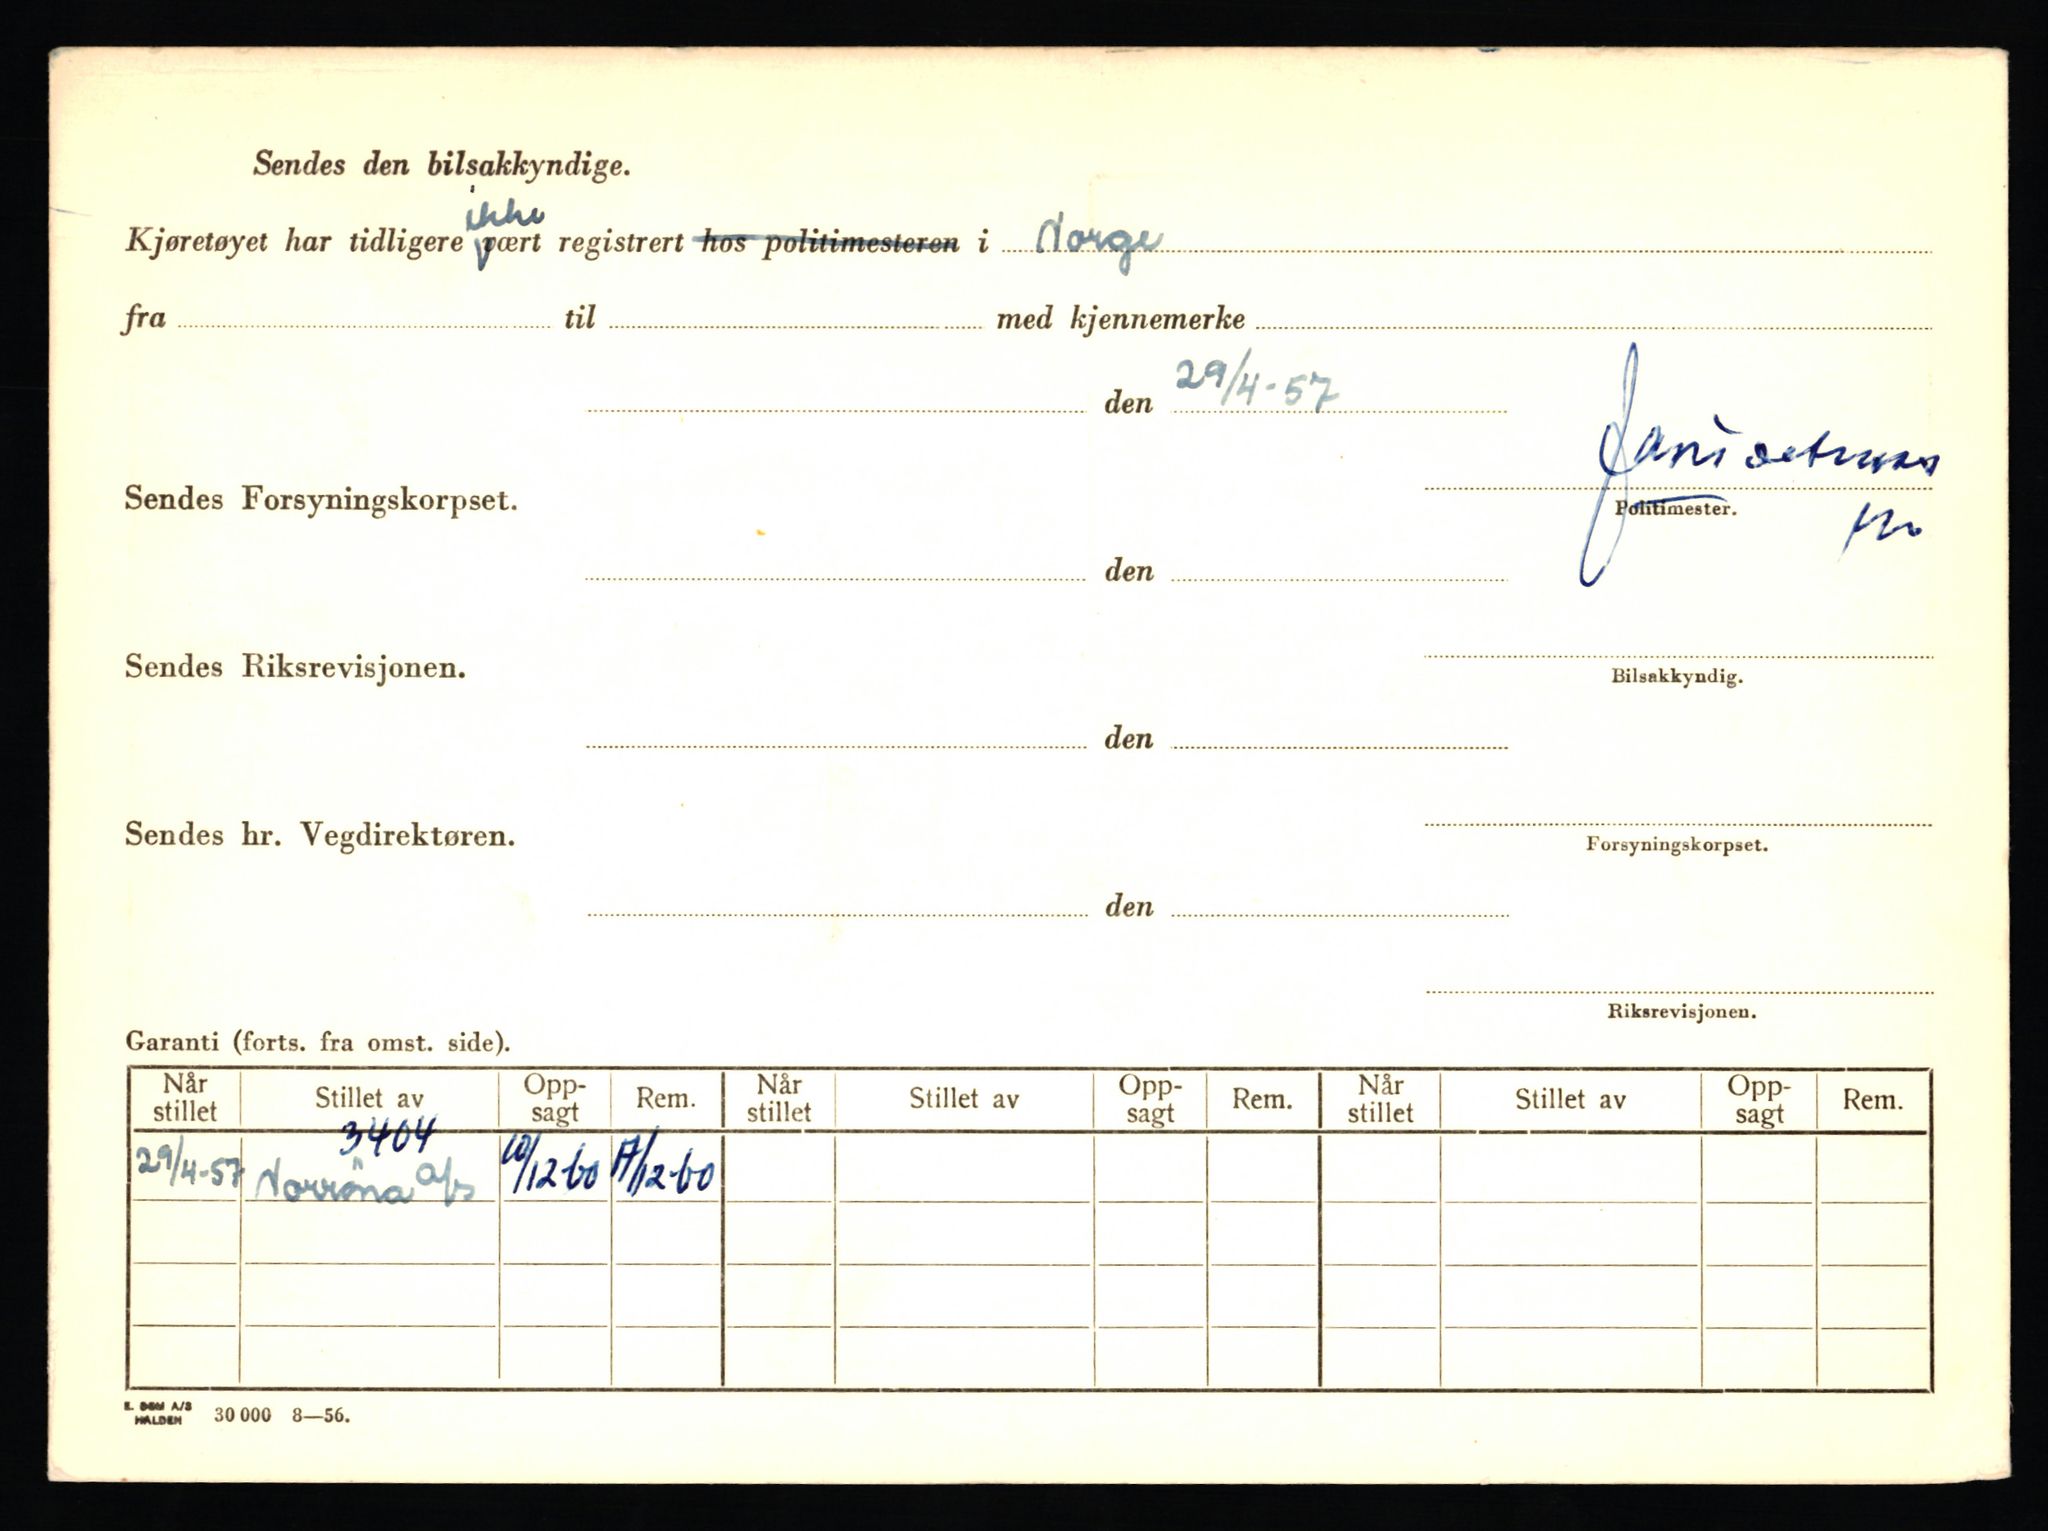 Sendes den bilsakkyndige.
ikke
Kjøretøyet har tidligere vært registrert hos politimesteren i Norge
fra til med kjennemerke
den 29/4-57
Sendes Forsyningskorpset.
Politimester.
den
Sendes Riksrevisjonen.
Bilsakkyndig.
den
Sendes hr. Vegdirektøren.
Forsyningskorpset.
den
Riksrevisjonen.
Garanti (forts. fra omst. side).
Når stillet Stillet av Opp-sagt Rem. Når stillet Stillet av Opp-sagt Rem. Når stillet Stillet av Opp-sagt Rem.
3404
29/4-57 Norröna a/s 10/12-60 /12-60
HALDEN 30 000 8—56.